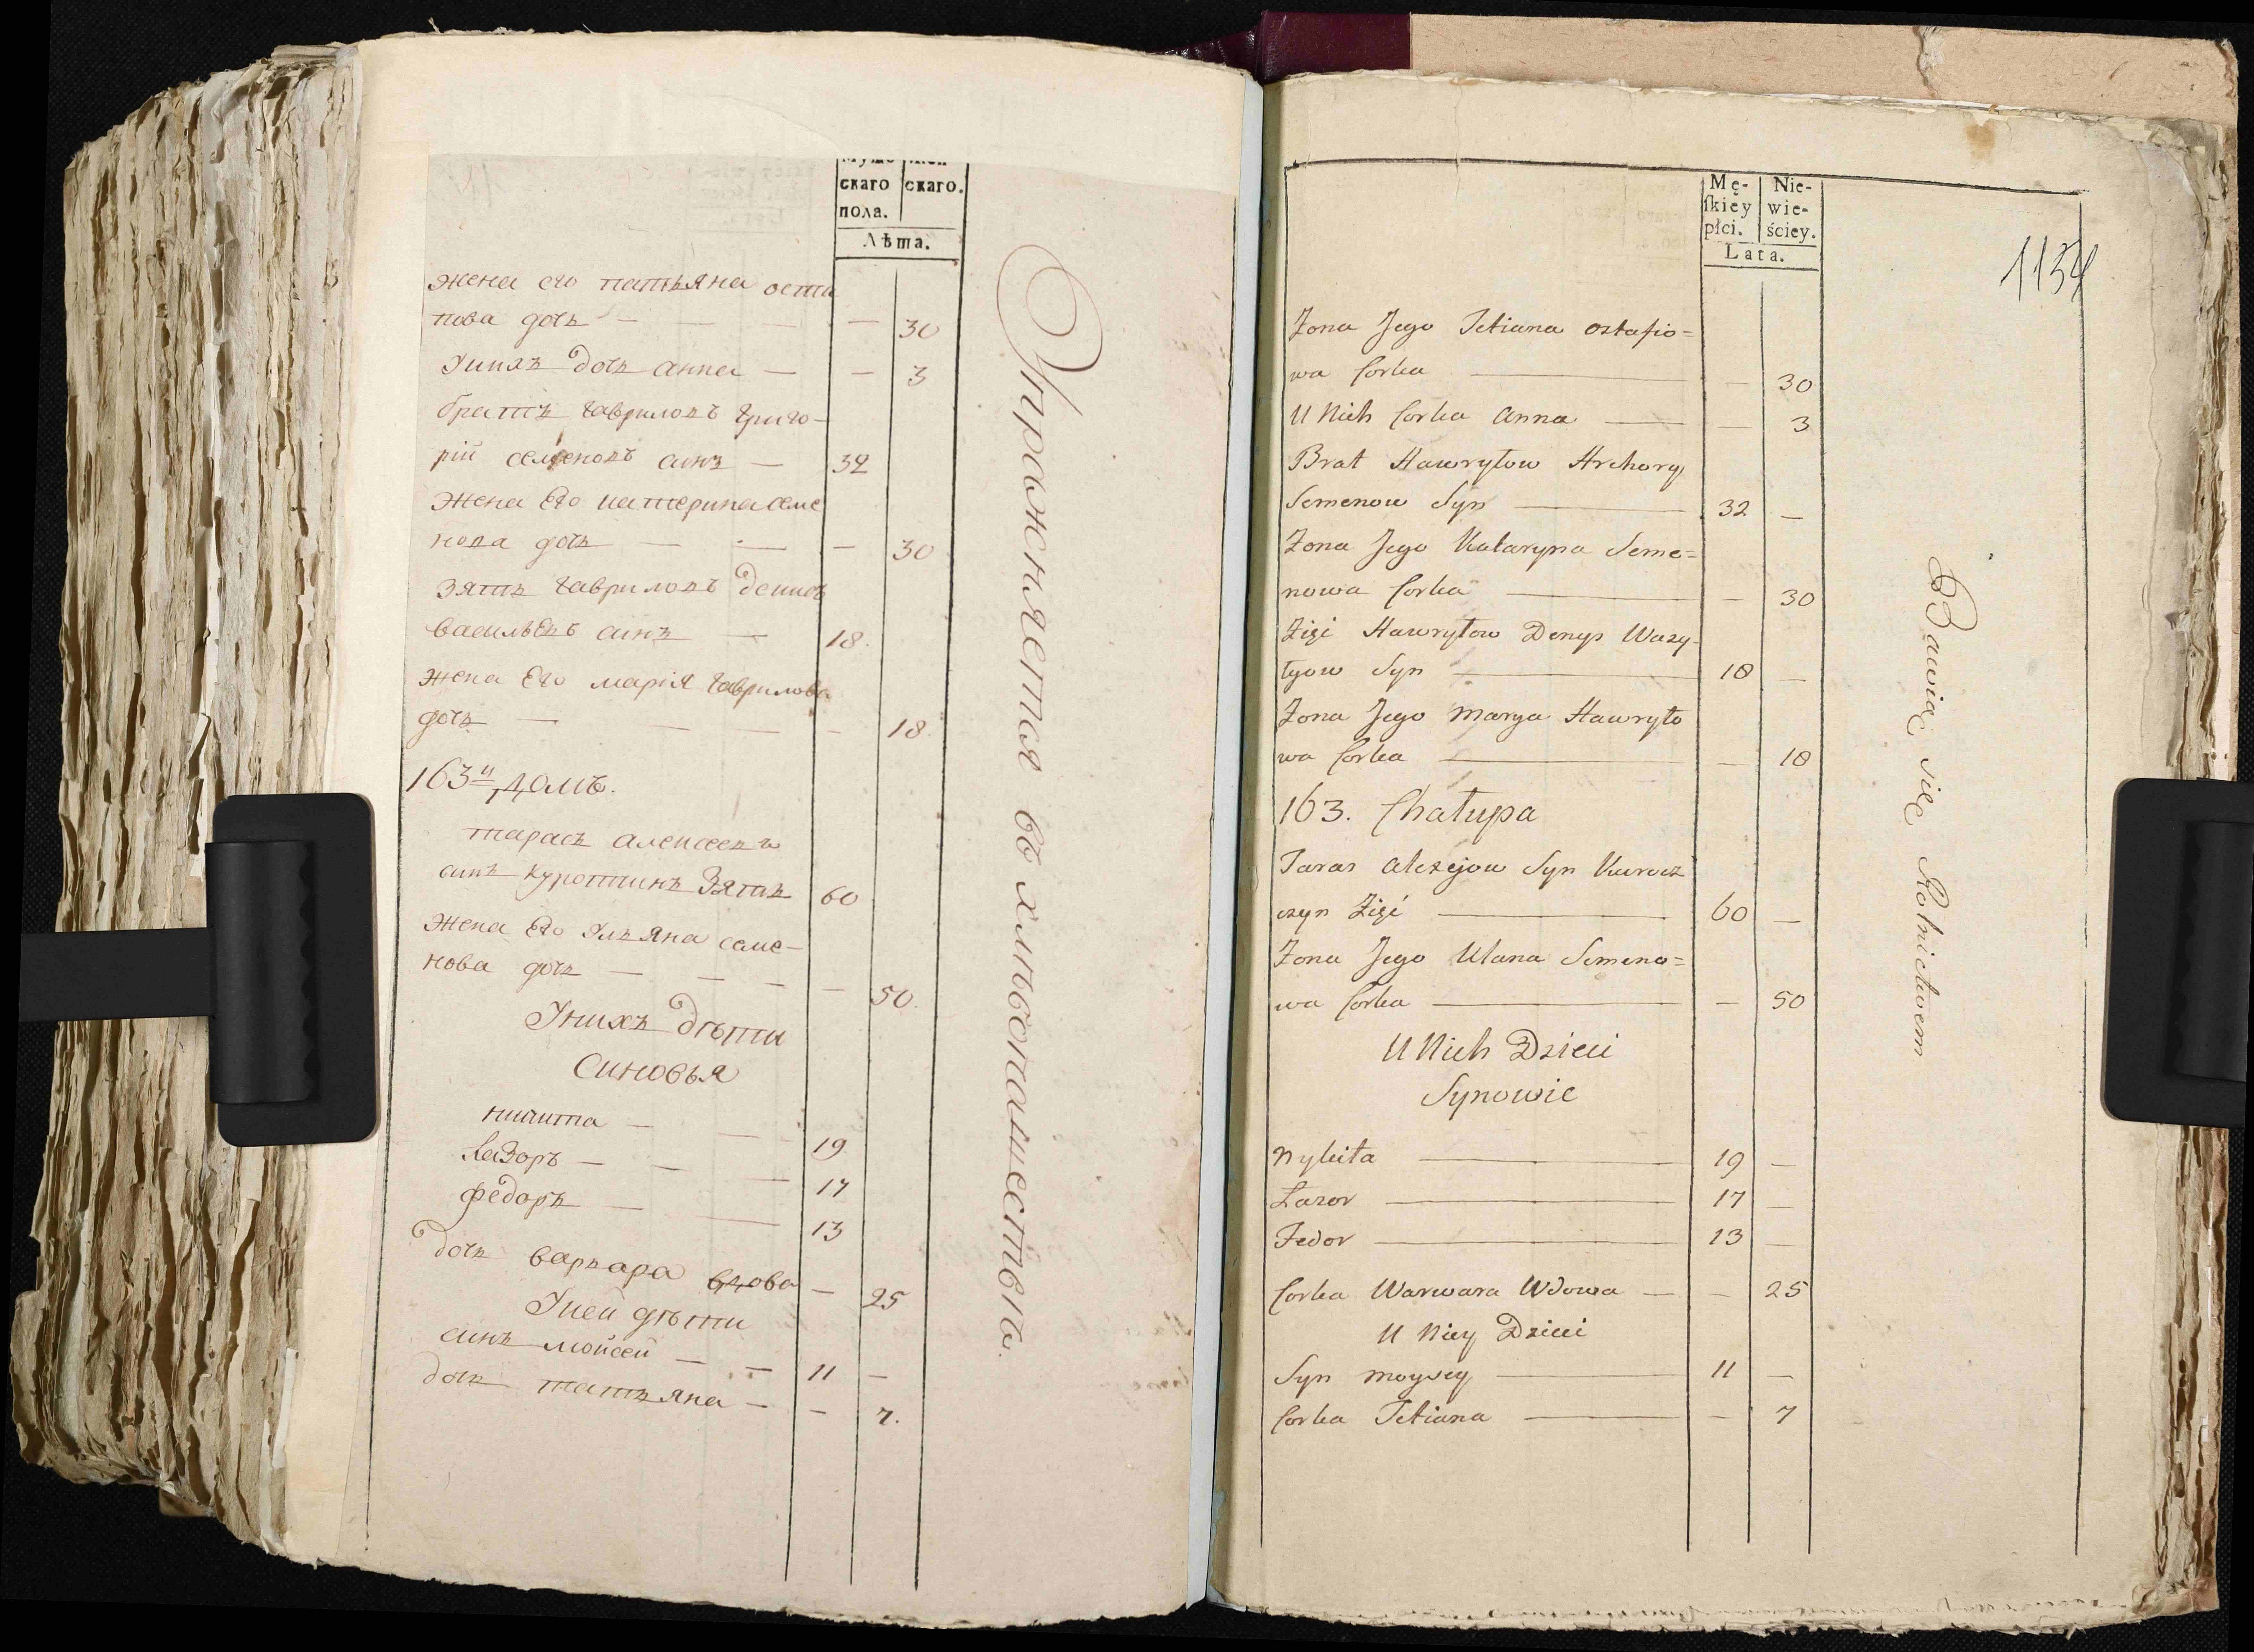 скаго скаго.
пола.
Лѣта.
жена его татьяна оста
пова дочь — — — — 30
Унихъ дочь анна — — 3
братъ гавриловъ григо-
рій семеновъ синъ — 32
жена Его катерина семе
нова дочь — — — 30
зять гавриловъ денисъ
васильевъ синъ — 18.
жена Его марія гаврилова
дочь — — — — 18.
163й домъ.
тарасъ алексеевъ
синъ куротчинъ зять 60
жена Его Ульяна семе-
нова дочь — — — — 50.
Унихъ дѣти
синовья
никита — — 19
лазоръ — — — 17
федоръ — — 13
дочь варвара вдова — 25
Уней дѣти
синъ мойсей — — 11 —
дочь татьяна — — 7.
Упражняется въ хлѣбопашествѣ.
Mę- Nie-
ſkiey wie-
płci. ściey.
Lata.
1154
Żona Jego Tetiana ostafio=
wa Corka — — 30
U Nich Corka Anna — — 3
Brat Hawryłow Hrehory
Semenow Syn — 32 —
Żona Jego Kataryna Seme=
nowa Corka — — 30
Zięć Hawryłow Denys Wasy-
lyow Syn — 18 —
Żona Jego Marya Hawryło
wa Corka — — 18
163. Chałupa
Taras Alexejow Syn Kurocz
czyn Zięć — 60 —
Żona Jego Ulana Semeno=
wa Corka — — 50
U Nich Dzieci
Synowie
Nykita — 19 —
Łazor — 17 —
Fedor — 13 —
Corka Warwara Wdowa — — 25
U Niey Dzieci
Syn Moysey — 11 —
Corka Tetiana — — 7
Bawią się Rolnictwem